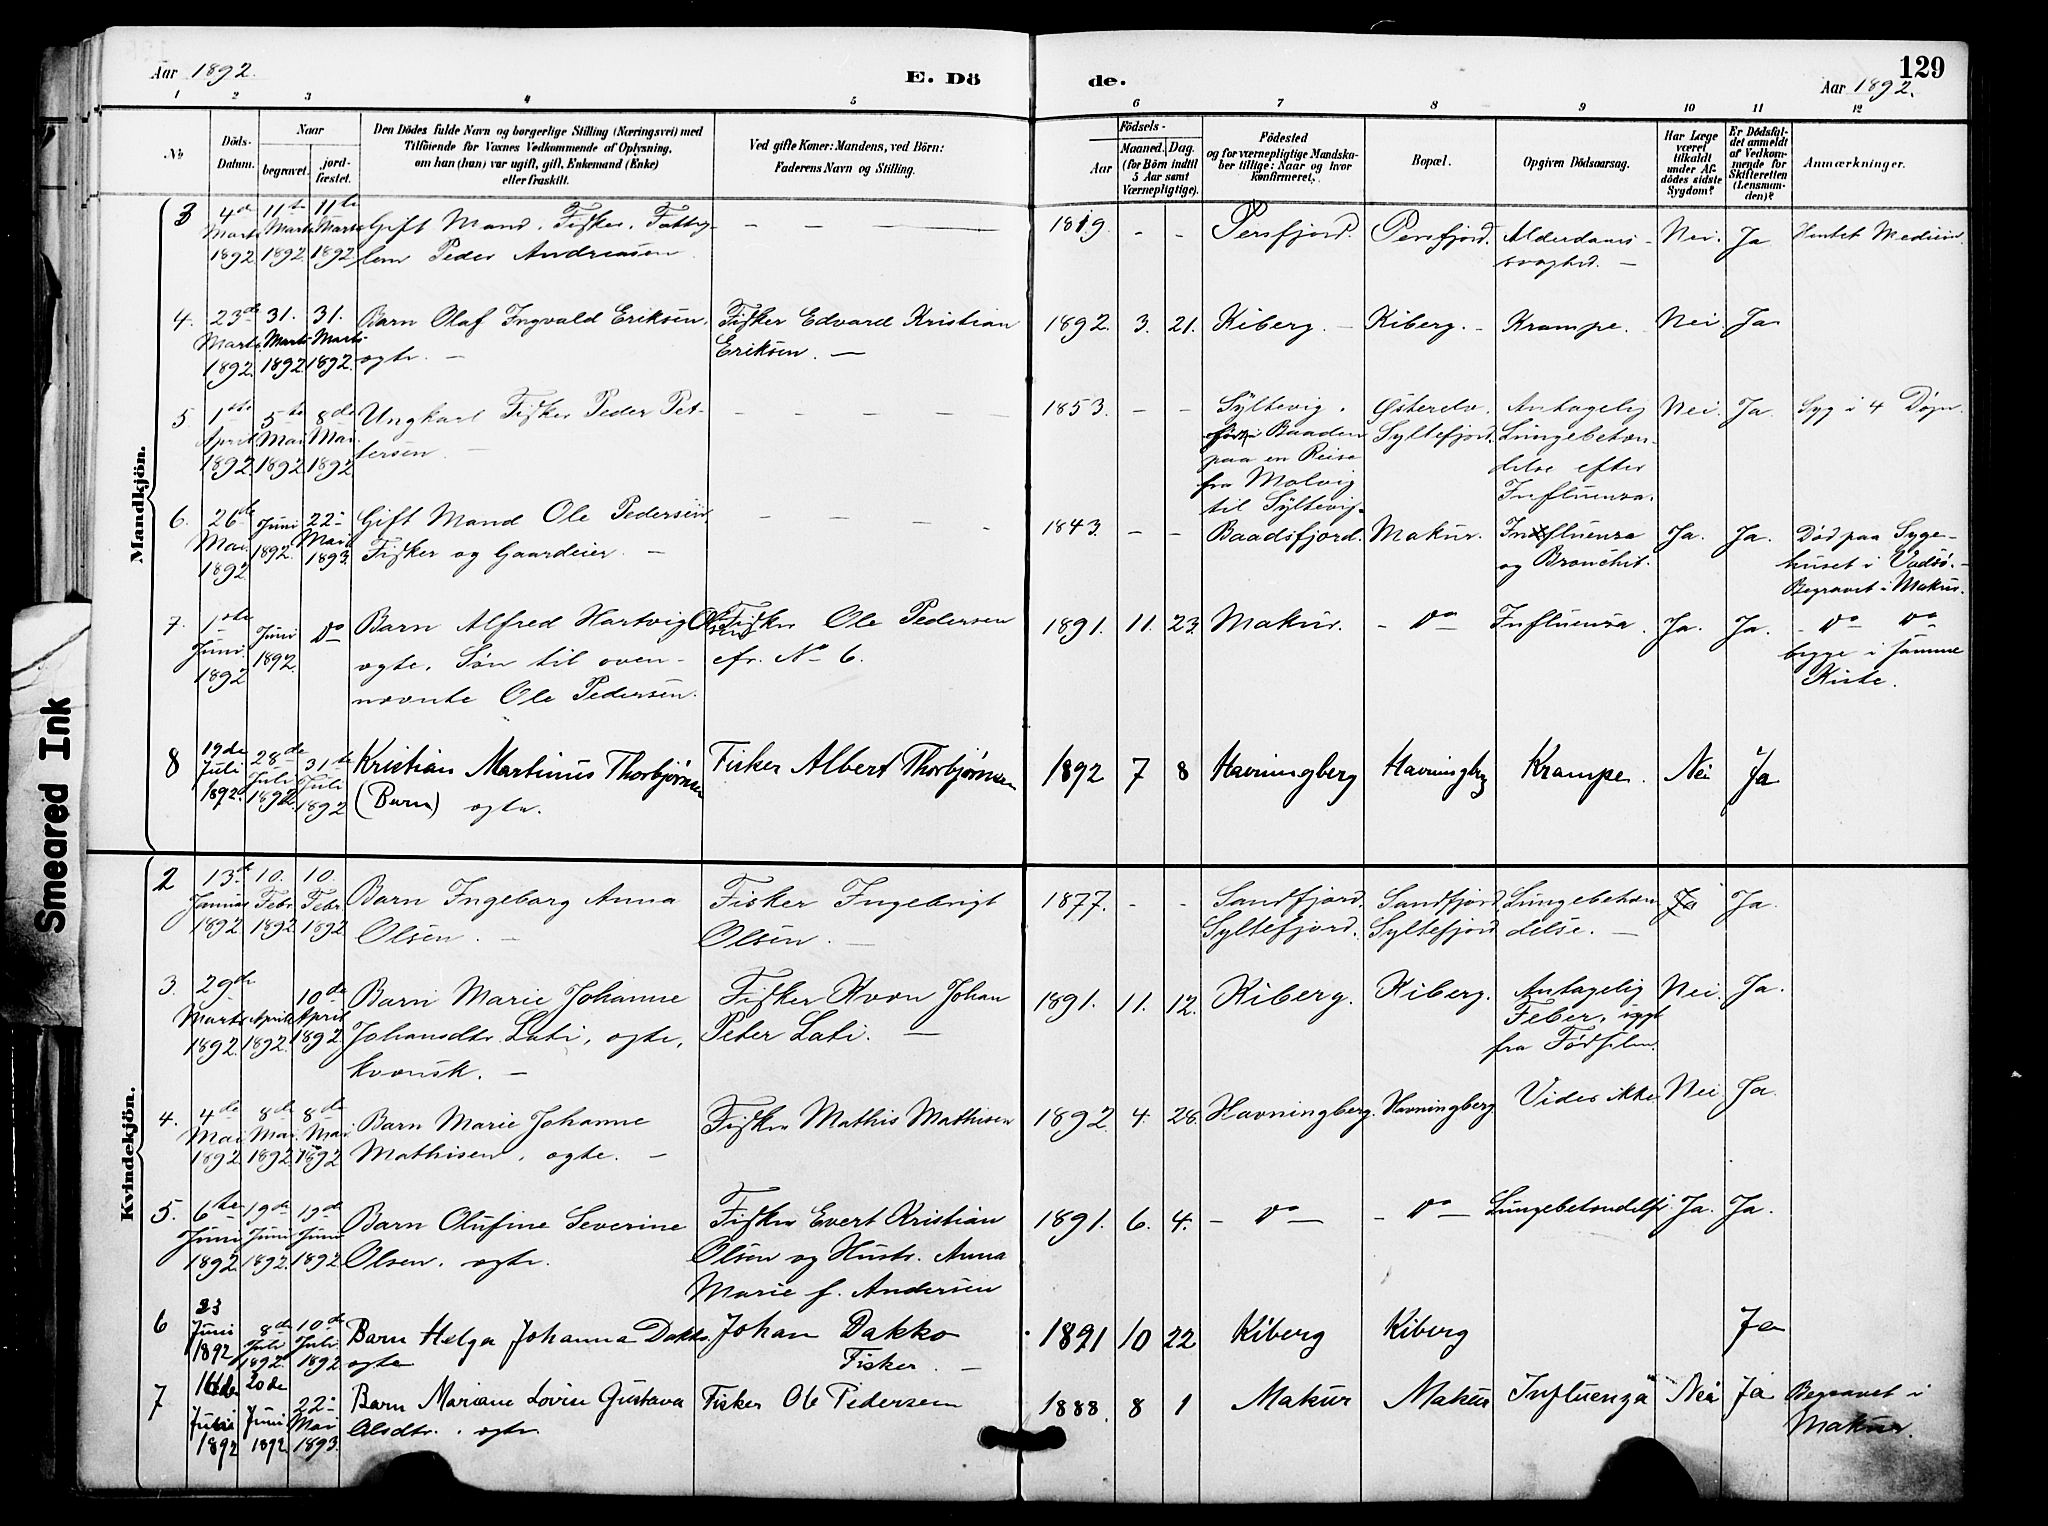 Aar 1892.
E. Dö
de.
129
Aar 1892.
1 2 3 4 5 6 7 8 9 10 11 12
No
Döds-
Datum.
Naar
begravet.
jord-
fæstet.
Den Dödes fulde Navn og borgerlige Stilling (Næringsvei) med
Tilföiende for Voxnes Vedkommende af Oplysning,
om han (hun) var ugift, gift, Enkemand (Enke)
eller fraskilt.
Ved gifte Koner: Mandens, ved Börn:
Faderens Navn og Stilling.
Födsels-
Aar
Maaned. Dag.
(for Börn indtil
5 Aar samt
Værnepligtige).
Födested
og for værnepligtige Mandska-
ber tillige: Naar og hvor
konfirmeret.
Bopæl.
Opgiven Dödsaarsag.
Har Læge
været
tilkaldt
under Af-
dödes sidste
Sygdom?
Er Dödsfal-
det anmeldt
af Vedkom-
mende for
Skifteretten
(Lensman-
den)?
Anmærkninger.
Mandkjön.
3 4de Marts 1892 11te Marts 1892. 11te Marts 1892 Gift Mand. Fisker. Fattig-
lem Peder Andreasen
1819. - - Persfjord. Persfjord. Alderdoms-
svaghed. — Nei. Ja Hentet Medicin.
4. 23de Marts 1892. 31. Marts 1892 31. Marts 1892. Barn Olaf Ingvald Eriksen,
ægte. —
Fisker Edvard Kristian
Eriksen. —
1892. 3. 21. Kiberg. — Kiberg. - Krampe. Nei Ja
5 1ste April 1892 5te Mai 1892 8de Mai 1892 Ungkarl Fisker Peder Pet-
tersen. —
1853. - - Syltevig.
i Baaden
paa en Reise
fra Molvig
til Syltevig.
Syltefjord.
Antagelig
Lungebetæn-
delse efter
Influenza.
Nei. Ja. Syg i 4 Døgn.
6. 26de Mai. 1892 Juni 1892. 22- Mai 1893. Gift Mand Ole Pedersen
Fisker og Gaardeier. —
1843. - - Baadsfjord. Makur. Influenza
og Bronchit. Ja. Ja. Død paa Syge-
huset i Vadsö. -
Begravet i Makur.
7. 1ste Juni. 1892 Juni 1892. do Barn Alfred Hartvig Olsen
ægte. Søn til oven-
nævnte Ole Pedersen.
Fisker Ole Pedersen
cfr. No 6.
1891. 11. 23. Makur. - do Influenza. Ja. Ja. - do do
begge i samme
Kiste.
8 19de Juli 1892. 28de Juli 1892. 31te Juli 1892 Kristian Martinus Thorbjørnsen
(Barn) ægte.
Fisker Albert Thorbjørnsen
1892 7 8 Havningberg Havningbrg Krampe. Nei Ja
Kvindekjön.
2 13de Januar 1892 10. Febr. 1892 10. Febr. 1892 Barn Ingeborg Anna
Olsen. —
Fisker Ingebrigt
Olsen. —
1877. - - Sandfjord.
Syltefjord.
Sandfjord
Syltefjord
Lungebetæn
delse. — Ja Ja.
3. 29de Marts 1892. April 1892. 10de April 1892 Barn Marie Johanne
Johansdtr. Lati, ægte,
kvænsk. —
Fisker Kvæn Johan
Peter Lati. —
1891. 11. 12. Kiberg. Kiberg. Antagelig
Feber, sygt
fra Fødselen. Nei. Ja.
4. 4de Mai 1892 8de Mai. 1892. 8de Mai 1892 Barn Marie Johanne
Mathisen, ægte. —
Fisker Mathis Mathisen
1892. 4. 28. Havningberg. Havningberg. Vides ikke Nei Ja.
5. 6te Juni 1892. 19de Juni 1892. 19de Juni 1892 Barn Olufine Severine
Olsen. ægte.
Fisker Evert Kristian
Olsen og Hustr. Anna
Marie f. Andersen
1891. 6. 4. - do — - do — Lungebetændelse. Ja. Ja.
6 23 Juni 1892 8de Juli 1892. 10de Juli. 1892 Barn Helga Johanna Dakko.
ægte
Johan Dakko
Fisker. —
1891 10 22 Kiberg Kiberg Ja
7 1892 20de Juni 1892 22- Mai 1893. Barn Mariane Lovise Gustava
Olsdtr.. ægte.
Fisker Ole Pedersen
1888. 8 1 Makur Makur Influenza Nei Ja Begravet i
Makur.
Smeared Ink